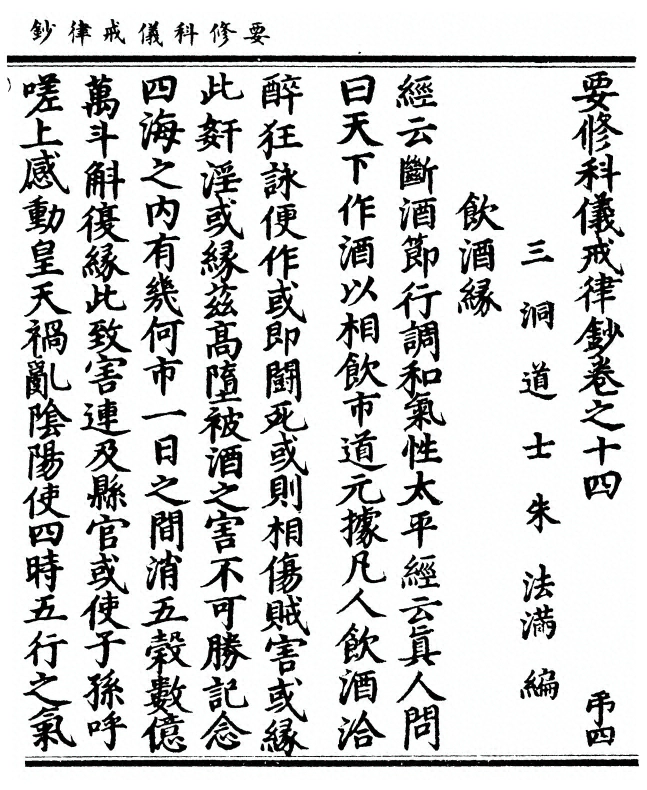 要修科儀戒律鈔
要修科儀戒律鈔卷之十四 弔四
三洞道士朱法滿編
飲酒緣
經云斷酒節行調和氣性太平經云眞人問
曰天下作酒以相飲市道元據凡人飲酒洽
醉狂詠便作或即鬪死或則相傷賊害或緣
此姧淫或緣兹高墮被酒之害不可勝記念
四海之内有幾何市一日之間消五穀數億
萬斗斛復緣此致害連及縣官或使子孫呼
嗟上感動皇天禍亂陰陽使四時五行之氣